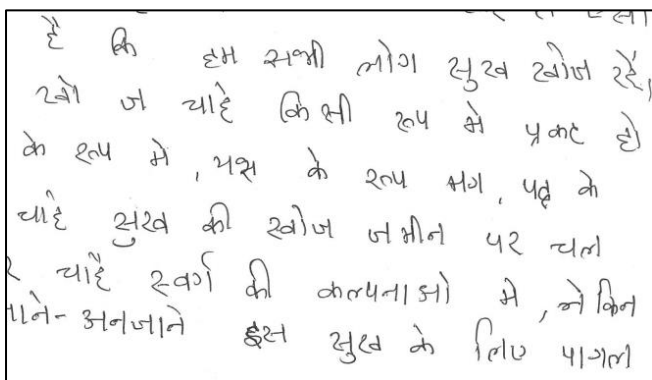 है कि हम सभी लोग सुख खोज रहें,
खो ज चाहे किसी रूप मे प्रकट हो
के रूप मे, यश के रूप मग, पद्व के
चाहे सुख की खोज जमीन पर चल
चाहे स्वर्ग की कल्पनाओ मे, लेकिन
जाने-अनजाने इस सुख के लिए पागल